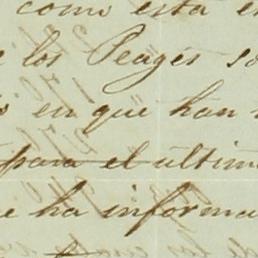 como esta e
los Peages so
en que han
para el ultim
e ha informa